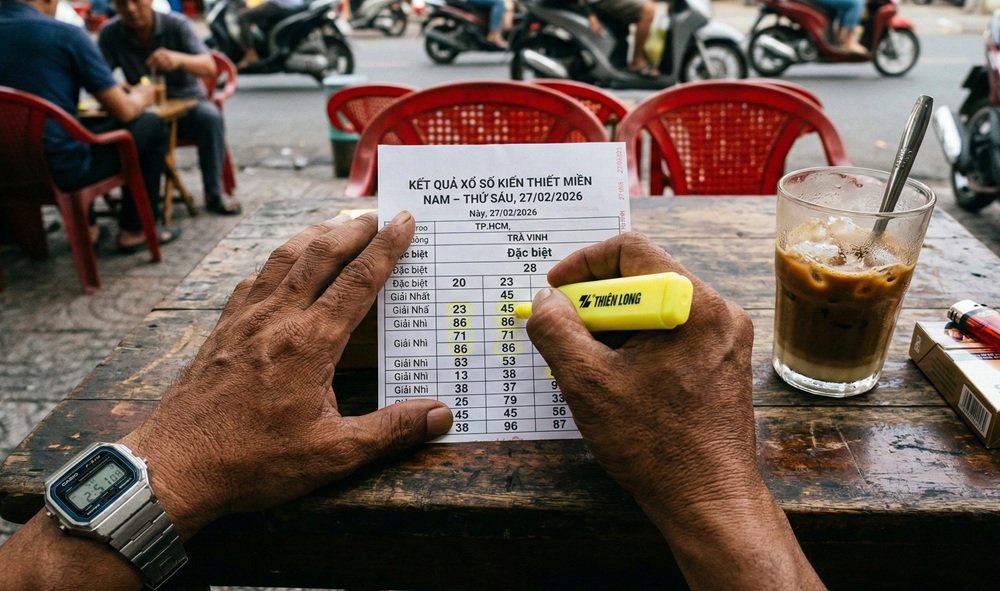 KẾT QUẢ XỔ SỐ KIẾN THIẾT MIỀN
NAM – THỨ SÁU, 27/02/2026
Này, 27/02/2026
TP.HCM,
TRÀ VINH
Đặc biệt Đặc biệt
Đặc biệt 28
Đặc biệt 20 23
Giải Nhất 45
Giải Nhấ 23 45
Giải Nhì 86 86
Giải Nhì 71 71
86 86
Giải Nhì 63 53
Giải Nhì 13 38
Giải Nhì 38 37
25 79 33
45 45 56
38 96 87
THIÊN LONG
CASIO